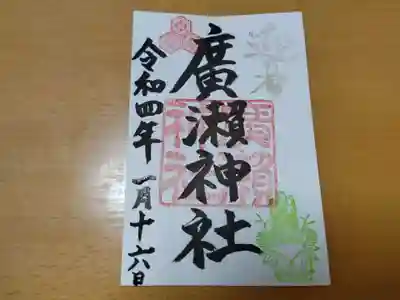 廣瀬神社
令和四年一月十六日